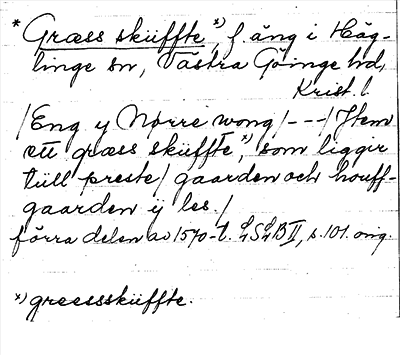 * Græss skiiffte, x) f. äng i Häg-
linge sn, Västra Göinge hd,
Krist. l.
/Eng y Norre wong/ - - - / Item
ett græss skiiffte x), som liggir
tiill preste/gaarden och houff-
gaarden ij les./
förra delen av 1570-t. LSLB II, s. 101. orig.
x) greessskiiffte.